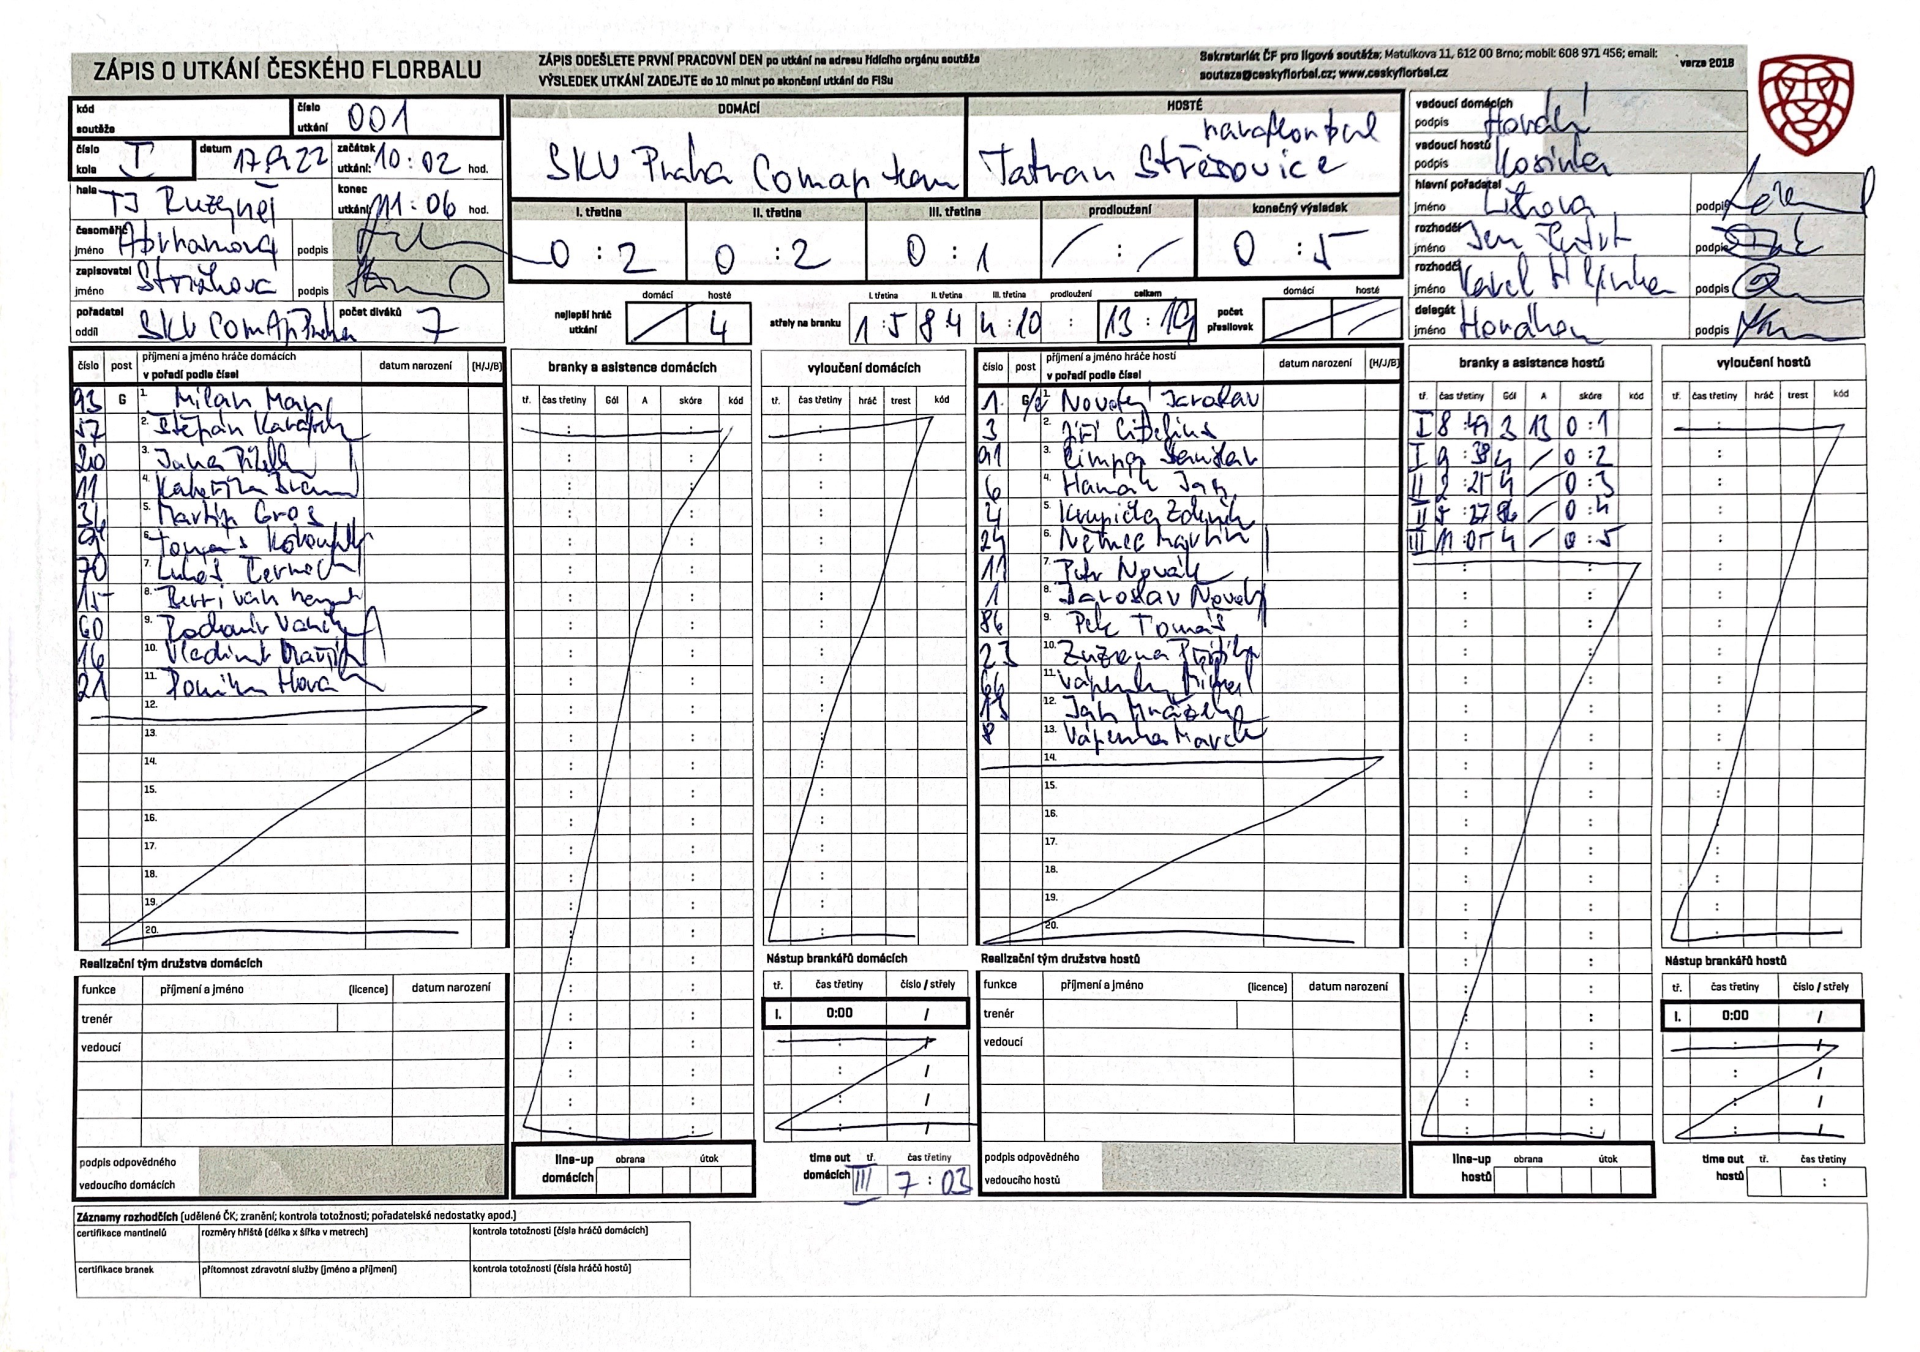 ZÁPIS O UTKÁNÍ ČESKÉHO FLORBALU
ZÁPIS ODEŠLETE PRVNÍ PRACOVNÍ DEN po utkání na adresu řídícího orgánu soutěže
VÝSLEDEK UTKÁNÍ ZADEJTE do 10 minut po skončení utkání do FISu
Sekretariát ČF pro ligové soutěže; Matulkova 11, 612 00 Brno; mobil: 608 971 456; email:
soutaze@ceskyflorbal.cz; www.ceskyflorbal.cz
verze 2018
kód soutěže
číslo utkání 001
číslo kola I
datum
začátek utkání: 10:02 hod.
hala TJ Ruzyně
konec utkání 11:06 hod.
časoměřič jméno Abrhamová podpis
zapisovatel jméno podpis
pořadatel oddíl SKV ComAp Praha
počet diváků 7
DOMÁCÍ
SKV Praha Comap team
HOSTÉ
paraflorbal
Tatran Střešovice
I. třetina II. třetina III. třetina prodloužení konečný výsledek
0 : 2 0 : 2 0 : 1 / : / 0 : 5
nejlepší hráč utkání domácí / hosté 4
střely na branku I. třetina II. třetina III. třetina prodloužení celkem
1 : 5 8 : 4 4 : 10 : 13 : 19
počet přesilovek domácí hosté
vedoucí domácích podpis
vedoucí hostů podpis
hlavní pořadatel jméno podpis
rozhodčí jméno Jan podpis
rozhodčí jméno Karel podpis
delegát jméno podpis
číslo post příjmení a jméno hráče domácích v pořadí podle čísel datum narození (H/J/B)
93 G 1. Milan
57 2. Štěpán
20 3. Jana
11 4. Kateřina
5. Martin Gros
6. Tomáš
70 7. Lukáš
15 8.
60 9. Radomír
16 10. Vladimír
21 11.
12.
13.
14.
15.
16.
17.
18.
19.
20.
branky a asistence domácích
tř. čas třetiny Gól A skóre kód
vyloučení domácích
tř. čas třetiny hráč trest kód
číslo post příjmení a jméno hráče hostí v pořadí podle čísel datum narození (H/J/B)
1 1. Novotný Jaroslav
3 2. Jiří
91 3. Stanislav
6 4. Hanák Jan
4 5. Krupička Zdeněk
24 6. Němec Martin
11 7. Petr Novák
1 8. Jaroslav Novotný
86 9. Pek Tomáš
23 10. Zuzana
66 11. Vápenka
12. Jan
8 13. Vápenka Marek
14.
15.
16.
17.
18.
19.
20.
branky a asistence hostů
tř. čas třetiny Gól A skóre kód
I 8 : 49 3 13 0 : 1
I 9 : 38 4 / 0 : 2
II 2 : 25 4 / 0 : 3
II 5 : 27 86 / 0 : 4
III 11 : 05 4 / 0 : 5
vyloučení hostů
tř. čas třetiny hráč trest kód
Realizační tým družstva domácích
funkce příjmení a jméno (licence) datum narození
trenér
vedoucí
podpis odpovědného vedoucího domácích
line-up domácích obrana útok
Nástup brankářů domácích
tř. čas třetiny číslo / střely
I. 0:00 /
time out domácích tř. čas třetiny
III 7 : 03
Realizační tým družstva hostů
funkce příjmení a jméno (licence) datum narození
trenér
vedoucí
podpis odpovědného vedoucího hostů
line-up hostů obrana útok
Nástup brankářů hostů
tř. čas třetiny číslo / střely
I. 0:00 /
time out hostů tř. čas třetiny
:
Záznamy rozhodčích (udělené ČK; zranění; kontrola totožnosti; pořadatelské nedostatky apod.)
certifikace mantinelů rozměry hřiště (délka x šířka v metrech) kontrola totožnosti (čísla hráčů domácích)
certifikace branek přítomnost zdravotní služby (jméno a příjmení) kontrola totožnosti (čísla hráčů hostů)